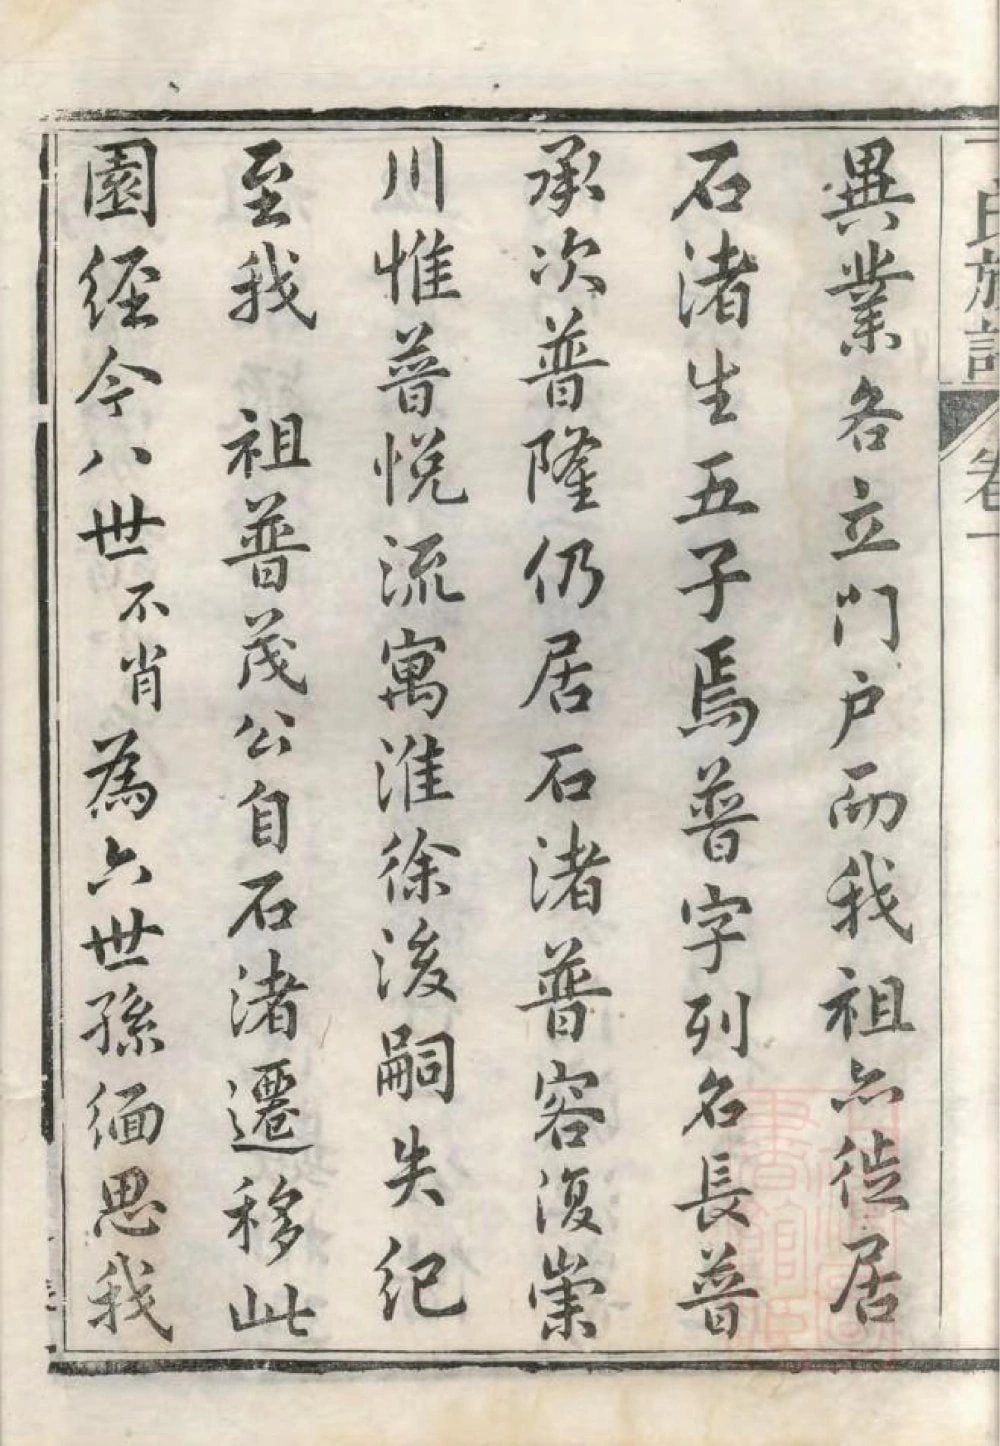 氏族譜
卷一
異業各立門户而我祖亦徙居
石渚生五子焉普字列名長普
承次普隆仍居石渚普容復崇
川惟普悦流寓淮徐後嗣失紀
至我　祖普茂公自石渚遷移此
園經今八世不肖為六世孫緬思我